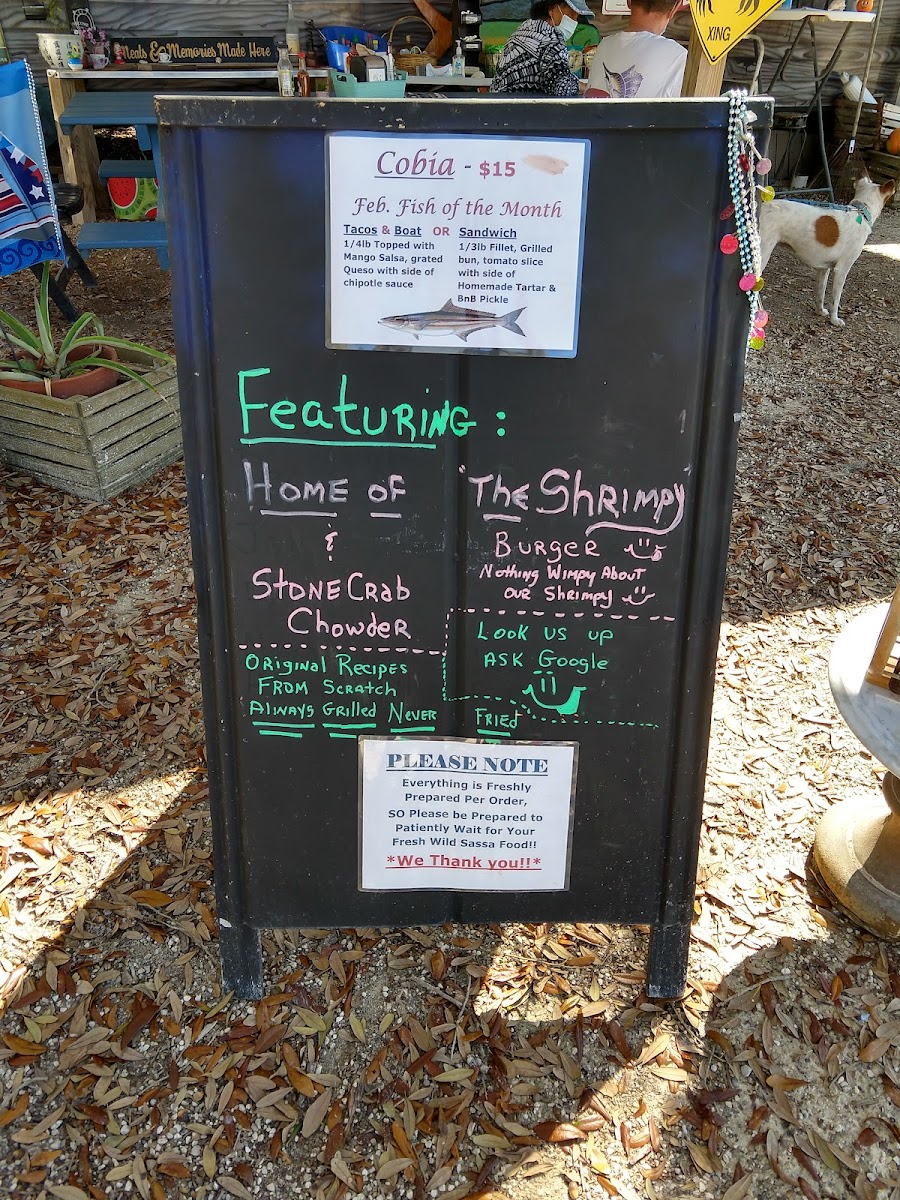 Meals & Memories Made Here
XING
Cobia - $15
Feb. Fish of the Month
Tacos & Boat OR Sandwich
1/4lb Topped with
Mango Salsa, grated
Queso with side of
chipotle sauce
1/3lb Fillet, Grilled
bun, tomato slice
with side of
Homemade Tartar &
BnB Pickle
FeatuRING :
HOME OF
&
STONECRab
ChowdeR
"The ShRIMPy
BURGER
Nothing Wimpy About
our Shrimpy
ORiginal Recipes
FROM Scratch
Always Grilled Never Fried
Look us up
ASK Google
PLEASE NOTE
Everything is Freshly
Prepared Per Order,
SO Please be Prepared to
Patiently Wait for Your
Fresh Wild Sassa Food!!
*We Thank you!!*